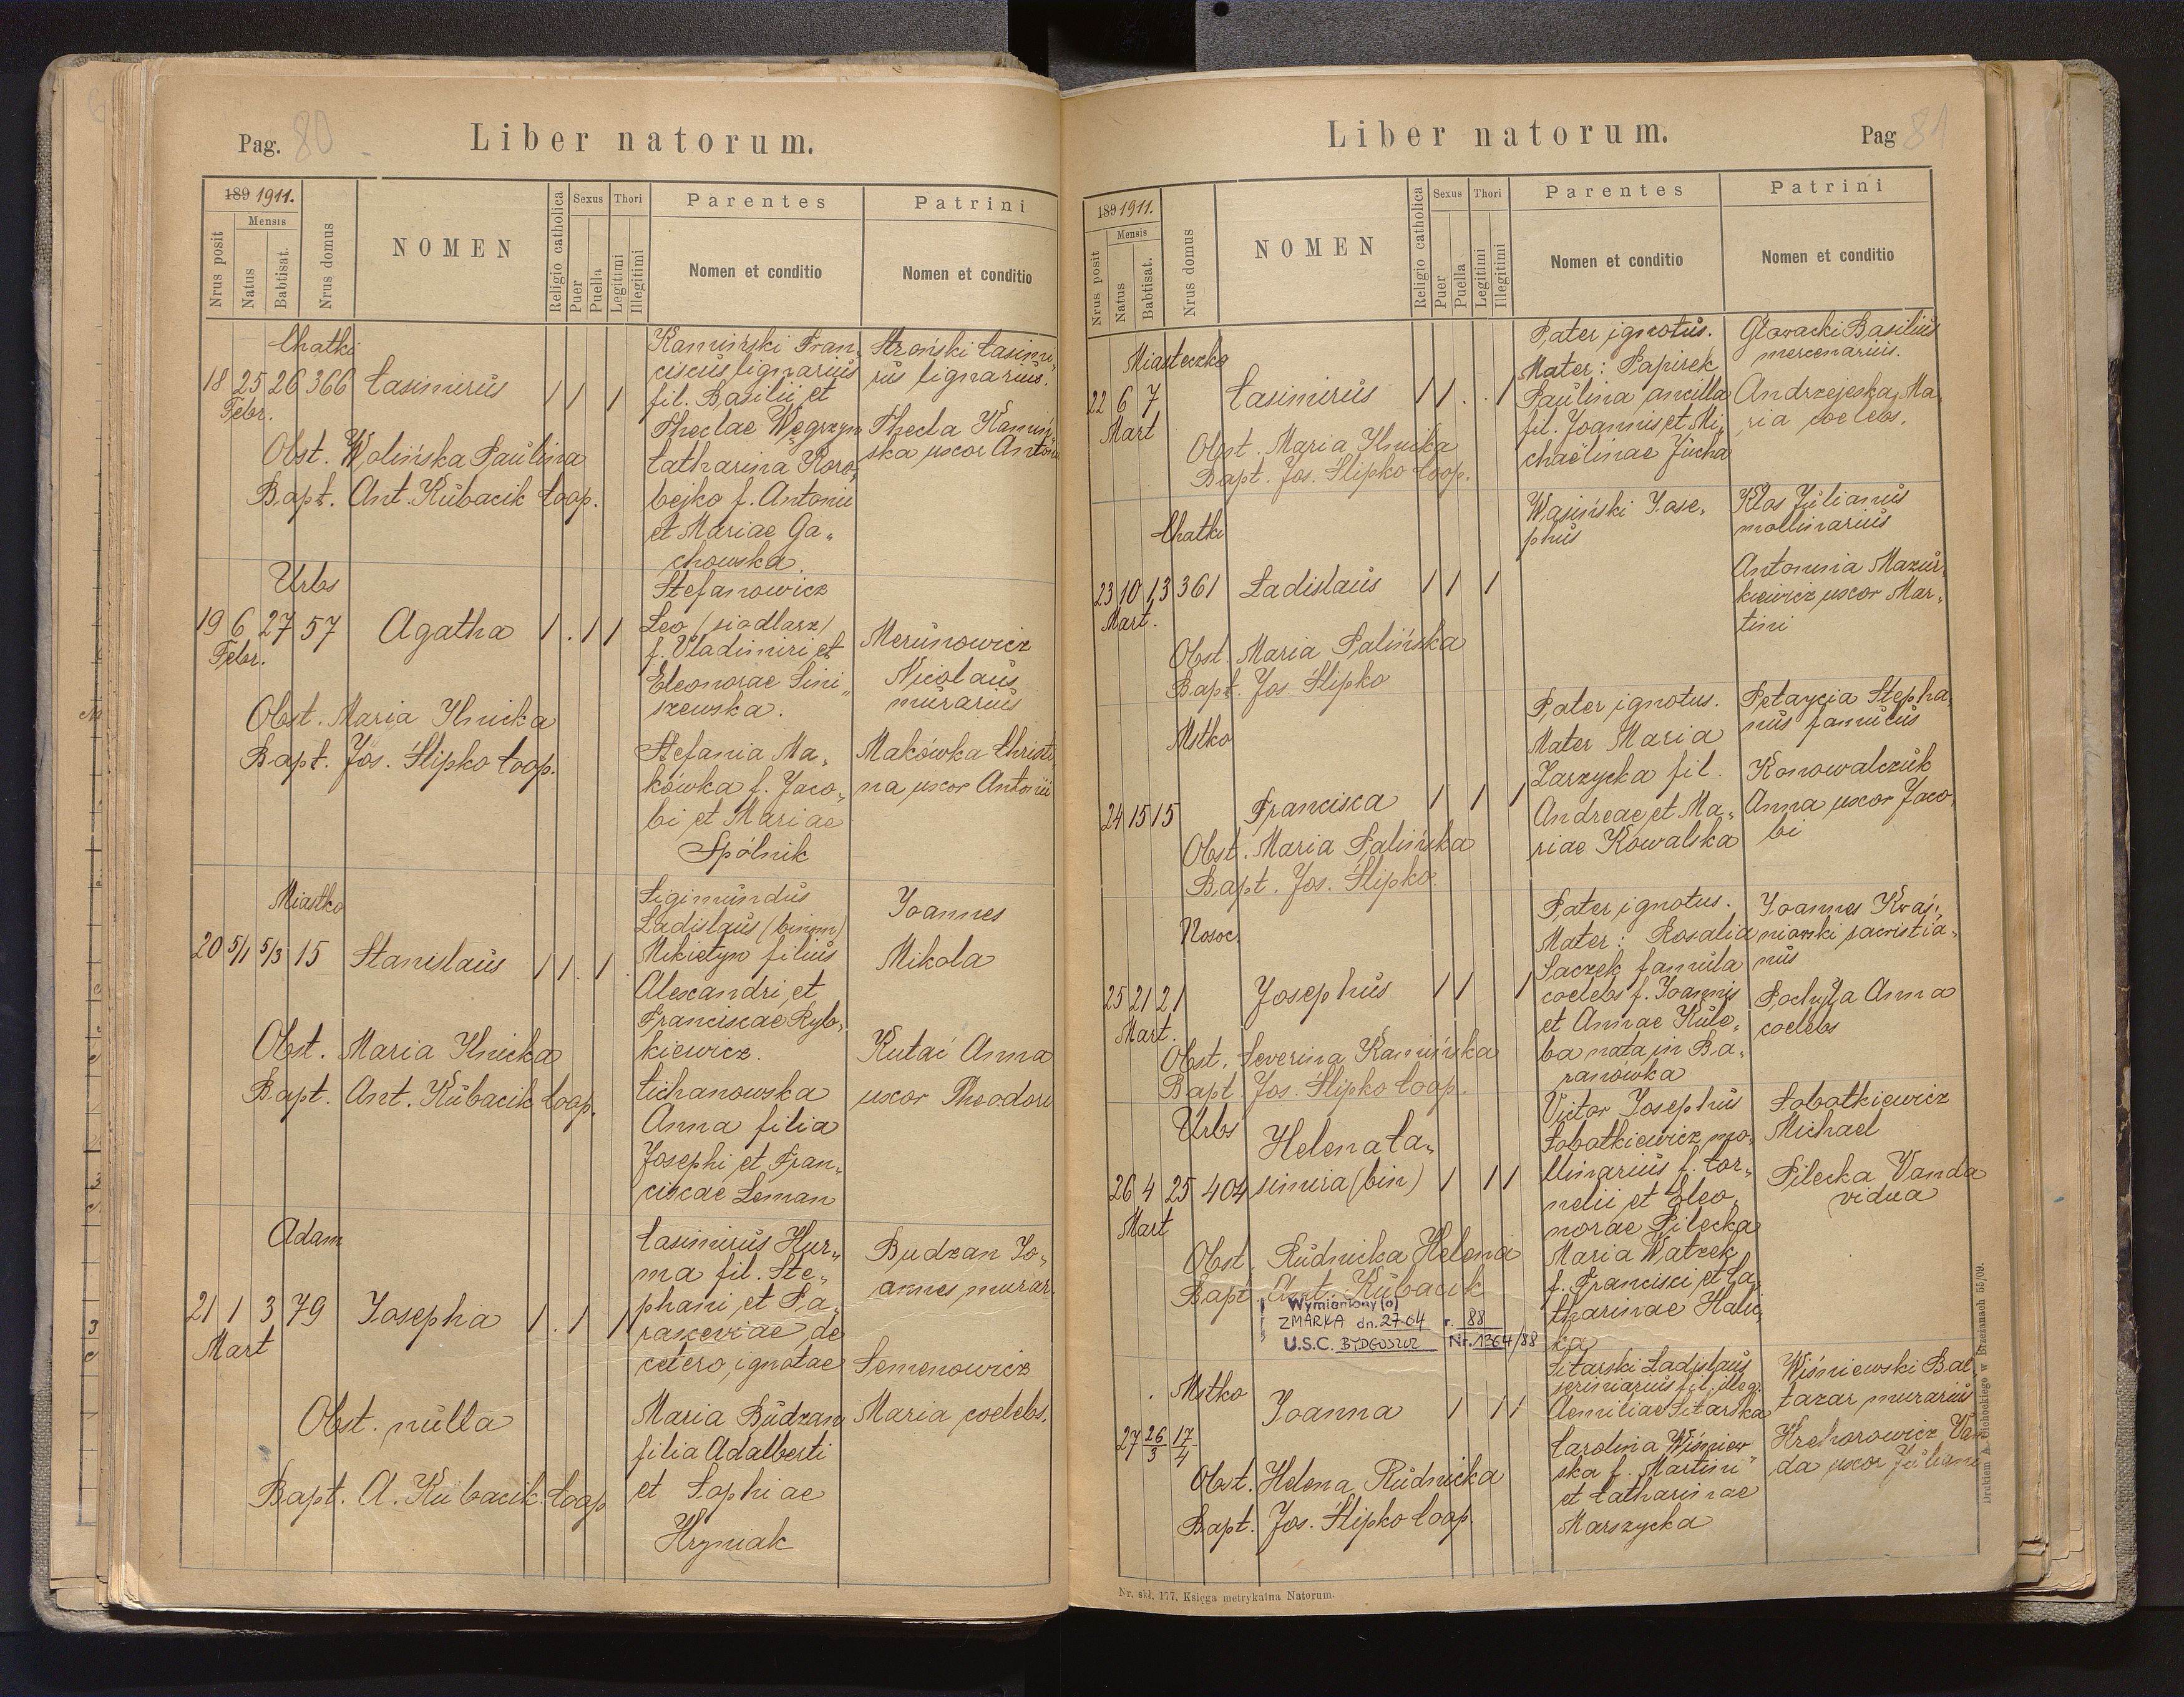 Pag. 80
Liber natorum.
189 1911.
Mensis
Nrus posit
Natus
Babtisat.
Nrus domus
NOMEN
Religio catholica
Sexus
Puer
Puella
Thori
Legitimi
Illegitimi
Parentes
Nomen et conditio
Patrini
Nomen et conditio
Chatki
18 25 26 366 Casimirus 1 1 1
Febr.
Obst. Wolińska Paulina
Bapt. Ant. Kubacik Coop.
Kamiński Fran„
ciscus lignarius
fil. Basilii et
Theclae Węgrzyn
Catharina Koro„
bejko f. Antonii
et Mariae Ga„
chowska.
Stroński Casimi„
rus lignarius.
Thecla Kamiń„
ska uxor Antonii
Urbs
19 6 27 57 Agatha 1 . 1 1
Febr.
Obst. Maria Ilnicka
Bapt. Jos. Ślipko Coop.
Stefanowicz
Leo (siodlarz)
f. Vladimiri et
Eleonorae Sini„
szewska.
Stefania Ma„
kówka f. Jaco„
bi et Mariae
Spólnik
Merunowicz
Nicolaus
murarius
Makówka Christi„
na uxor Antonii
Miastko
20 5/1 5/3 15 Stanislaus 1 1 . 1 .
Obst. Maria Ilnicka
Bapt. Ant. Kubacik Coop.
Sigimundus
Ladislaus (binm)
Mikietyn filius
Alexandri et
Franciscae Ryb„
kiewicz.
Cichanowska
Anna filia
Josephi et Fran„
ciscae Leman
Joannes
Mikola
Kutai Anna
uxor Theodori
Adam
21 1 3 79 Josepha 1 . 1 1
Mart
Obst. nulla
Bapt. A. Kubacik Coop
Casimirus Hur„
ma fil. Ste„
phani et Pa„
raskeviae de
cetero ignotae
Maria Budzan
filia Adalberti
et Sophiae
Hryniak
Budzan Jo„
annes murar.
Semenowicz
Maria coelebs.
Liber natorum.
Pag 81
189 1911.
Mensis
Nrus posit
Natus
Babtisat.
Nrus domus
NOMEN
Religio catholica
Sexus
Puer
Puella
Thori
Legitimi
Illegitimi
Parentes
Nomen et conditio
Patrini
Nomen et conditio
Miasteczko
22 6 7 Casimirus 1 1 . . 1
Mart
Obst. Maria Ilnicka
Bapt. Jos. Ślipko Coop.
Pater ignotus.
Mater: Papirek
Paulina ancilla
fil. Joannis et Mi„
chaëlinae Jucha
Głowacki Basilius
mercenarius.
Andrzejeska Ma„
ria coelebs.
Chatki
23 10 13 361 Ladislaus 1 1 1
Mart.
Obst. Maria Palińska
Bapt. Jos. Ślipko
Wasiński Jose„
phus
Klos Julianus
mollinarius
Antonina Mazur„
kiewicz uxor Mar„
tini
Mstko
24 15 15 Francisca 1 1 1
Obst. Maria Palińska
Bapt. Jos. Ślipko.
Pater ignotus.
Mater Maria
Zarzycka fil.
Andreae et Ma„
riae Kowalska
Petrycia Stepha„
nus famulus
Konowalczuk
Anna uxor Jaco„
bi
Nosoc.
25 21 21 Josephus 1 1 1
Mart.
Obst. Severina Kamińska
Bapt. Jos. Ślipko Coop.
Pater ignotus.
Mater: Rosalia
Saczek famula
coelebs f. Joannis
et Annae Kule„
ba nata in Ba„
ranówka
Joannes Kraś„
niawski sacristia„
nus
Pochyła Anna
coelebs
Urbs
Helena Ca„
26 4 25 404 simira (bin) 1 1 1
Mart
Obst. Rudnicka Helena
Bapt. Ant. Kubacik
Wymieniony (a)
ZMARŁA dn. 27 04 r. 88
U.S.C. BYDGOSZCZ Nr. 1364/88
Victor Josephus
Sobotkiewicz mo„
llinarius f. Cor„
nelii et Eleo„
norae Pilecka
Maria Watzek
f. Francisci et Ca„
tharinae Halic„
ka
Sobotkiewicz
Michael
Pilecka Vanda
vidua
Mstko
27 26/3 17/4 Joanna 1 1 1
Obst. Helena Rudnicka
Bapt. Jos. Ślipko Coop.
Sitarski Ladislaus
scriniarius fil. illeg.
Aemiliae Sitarska
Carolina Wiśniew„
ska f. Martini
et Catharinae
Marszycka
Wiśniewski Bal„
tazar murarius
Hrehorowicz Van„
da uxor Juliani
Nr. skł. 177. Księga metrykalna Natorum.
Drukiem A. Cichockiego w Brzeżanach 55/09.